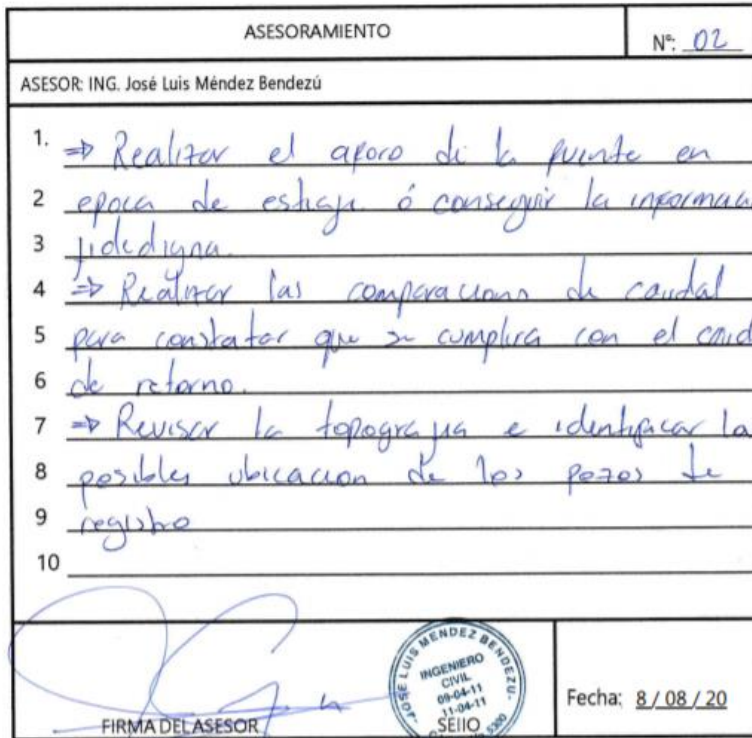 ASESORAMIENTO
Nº: 02
ASESOR: ING. José Luis Méndez Bendezú
1. ⇒ Realizar el aforo de la fuente en
2 epoca de estiaje ó conseguir la informac
3 fidedigna.
4 ⇒ Realizar las comparaciones de caudal
5 para constatar que se cumplira con el caud
6 de retorno.
7 ⇒ Revisar la topografia e identificar la
8 posibles ubicacion de los pozos de
9 registro
10
JOSE LUIS MENDEZ BENDEZU
INGENIERO
CIVIL
09-04-11
11-04-11
FIRMA DEL ASESOR
SEllO
Fecha: 8 / 08 / 20